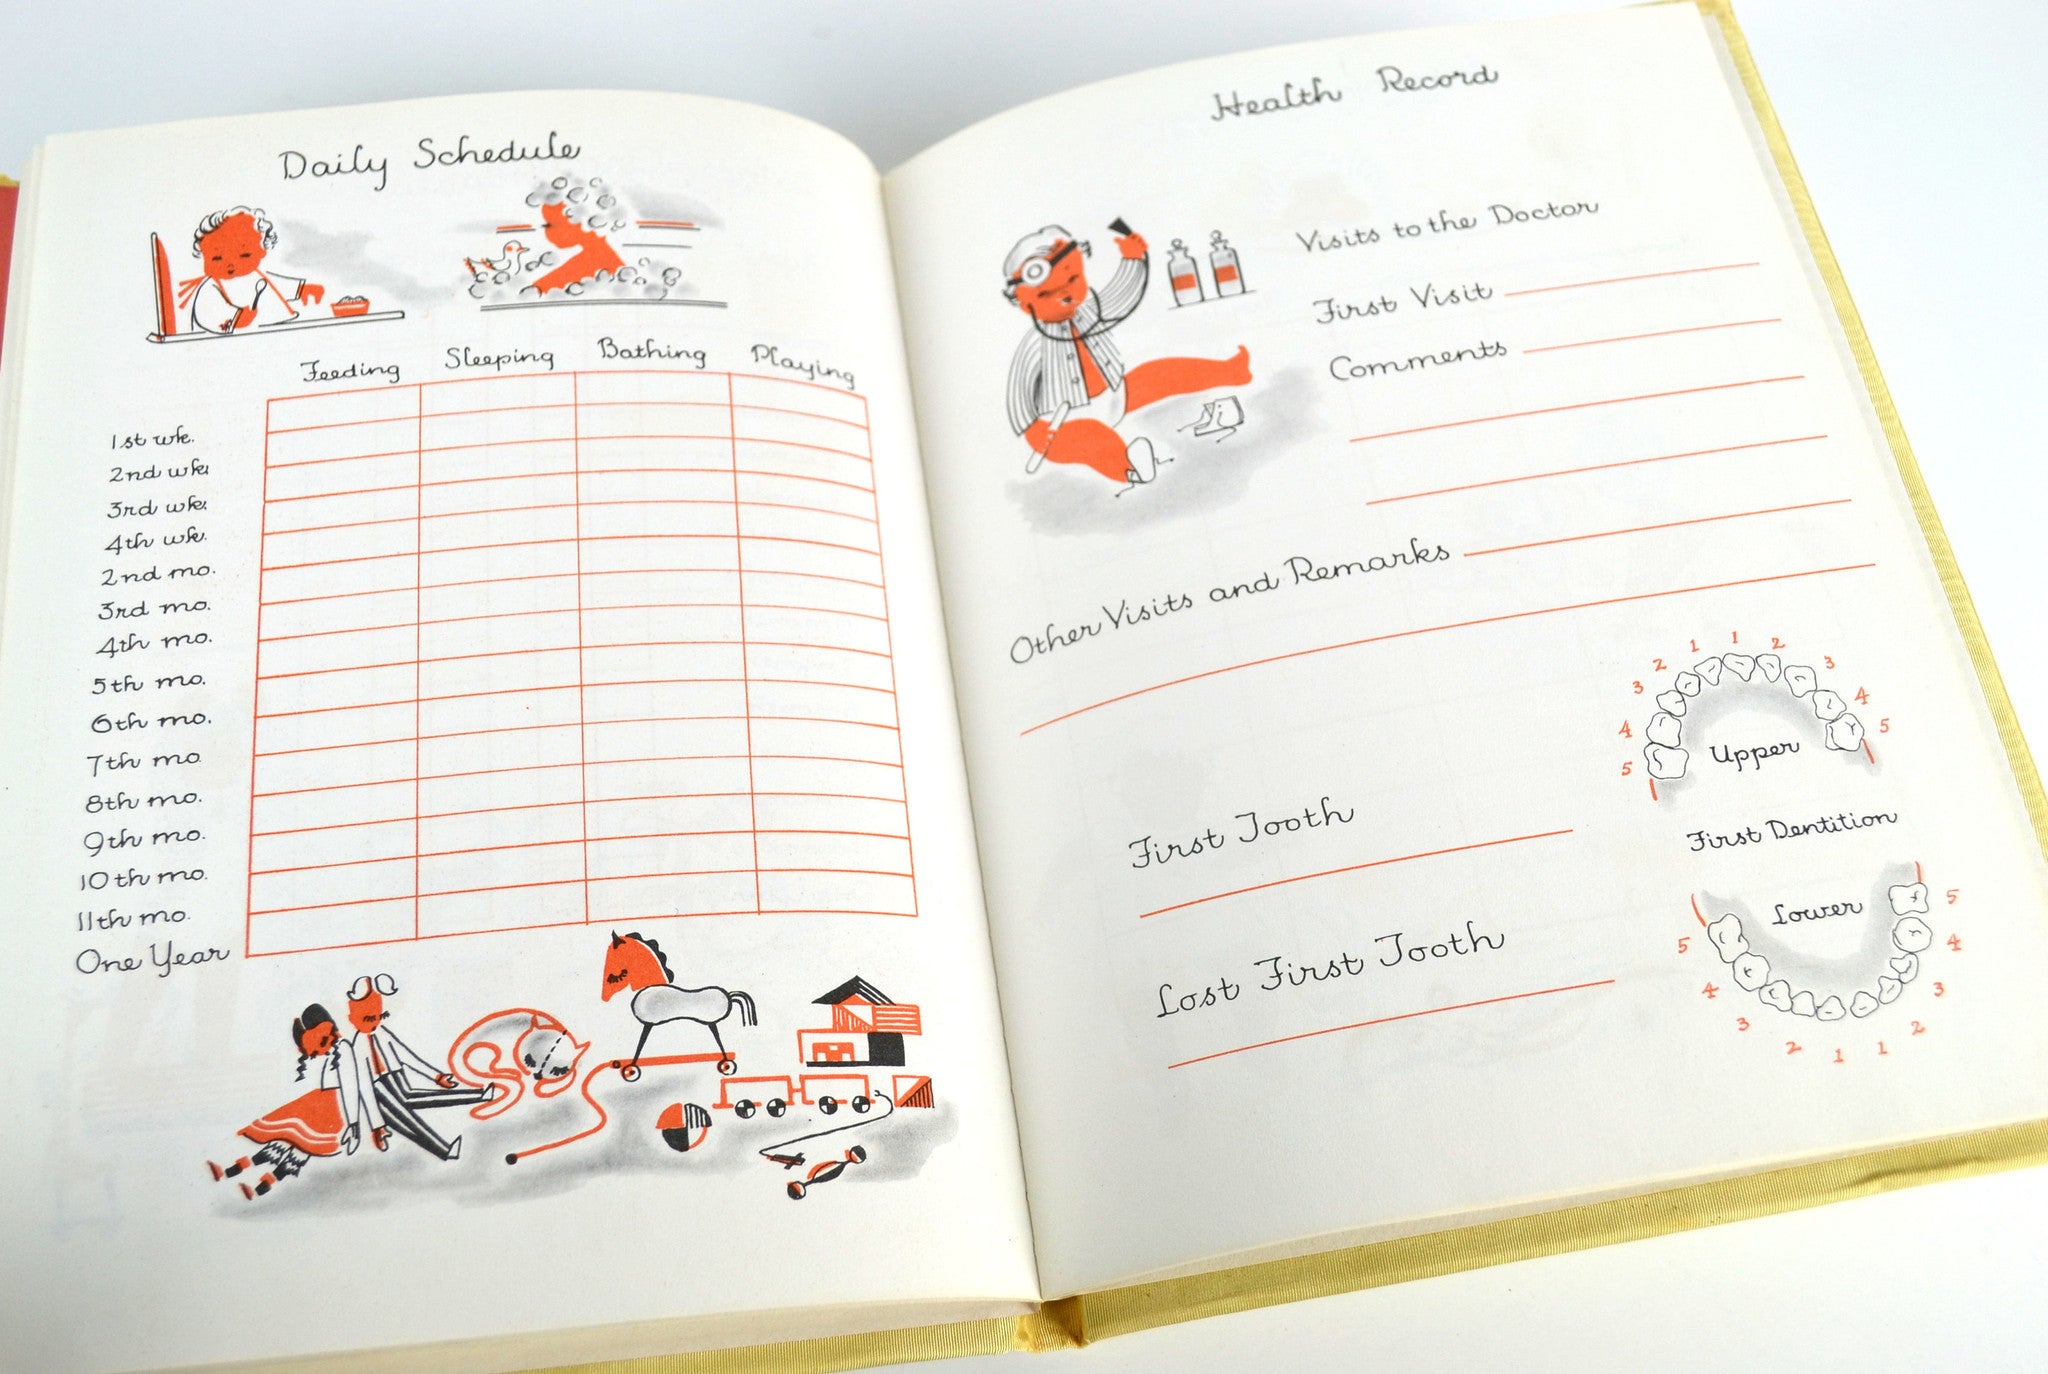 Daily Schedule
Feeding Sleeping Bathing Playing
1st wk.
2nd wk.
3rd wk.
4th wk.
2nd mo.
3rd mo.
4th mo.
5th mo.
6th mo.
7th mo
8th mo.
9th mo.
10th mo.
11th mo.
One Year
Health Record
Visits to the Doctor
First Visit
Comments
Other Visits and Remarks
First Tooth
Lost First Tooth
5 4 3 2 1 1 2 3 4 5
Upper
First Dentition
Lower
5 4 3 2 1 1 2 3 4 5